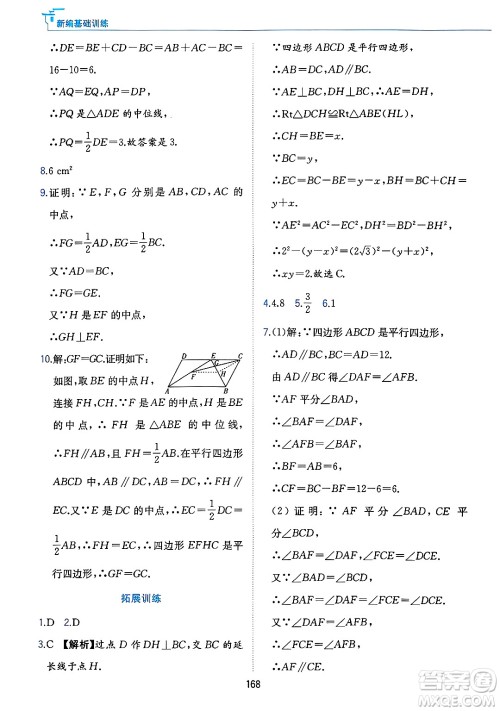 新编基础训练
∴DE=BE-BD=BE-AC=
16-10=6.
又∵AQ=EQ,AP=DP,
∴PQ是△ADE的中位线,
∴PQ=1/2DE=3.故答案是3.
8.6 cm²
9.证明:∵E,F,G分别是AB,CD,AC的
中点,
∴FG=1/2AD,EG=1/2BC.
又∵AD=BC,
∴FG=GE.
又∵H是EF的中点,
∴GH⊥EF.
10.解:GF=GC.证明如下:
如图,取BE的中点H,
连接FH,CH.
D E C
G
F H
A B
∴FH是△ABE的中位线,
∴FH∥AB,FH=1/2AB.在平行四边形
ABCD中,AB∥DC,AB=DC,∴FH∥
EC.又∵E是DC的中点,∴EC=1/2DC=
1/2AB=FH,∴四边形EFHC是平行
四边形,∴GF=GC.
拓展训练
1.D 2.D
3.C 【解析】过点D作DH⊥BC,交BC的延
长线于点H.
∵四边形ABCD是平行四边形,
∴AB=CD,AD=BC,
∴AD∥BC.
∵AE⊥BC,DH⊥BC,
∴AE=DH,
∴Rt△DCH≌Rt△ABE(HL),
∴CH=BE.
∵BC=y,
∴EC=y-x,BH=y+x.
∵AE²=AC²-EC²,DH²=BD²-BH²,
∴2²-(y-x)²=(2√3)²-(y+x)²,
∴xy=2.故选C.
4.4.8 5.3/2 6.1
7.(1)解:∵四边形ABCD是平行四边形,
∴AD∥BC,AD=BC=12.
由AD∥BC,得∠DAF=∠AFB.
∵AF平分∠BAD,∴∠DAF=∠BAF,
∴∠BAF=∠AFB,
∴BF=AB=6,
∴FC=BC-BF=12-6=6.
(2)证明:∵AF平分∠BAD,CE平
分∠BCD,
∴∠BAF=∠DAF=1/2∠BAD,
∠BCE=∠DCE=1/2∠BCD.
又∵∠BAD=∠BCD,
∴∠DAF=∠BCE.
又∵∠DAF=∠AFB,
∴∠BCE=∠AFB,
∴AF∥EC.
168